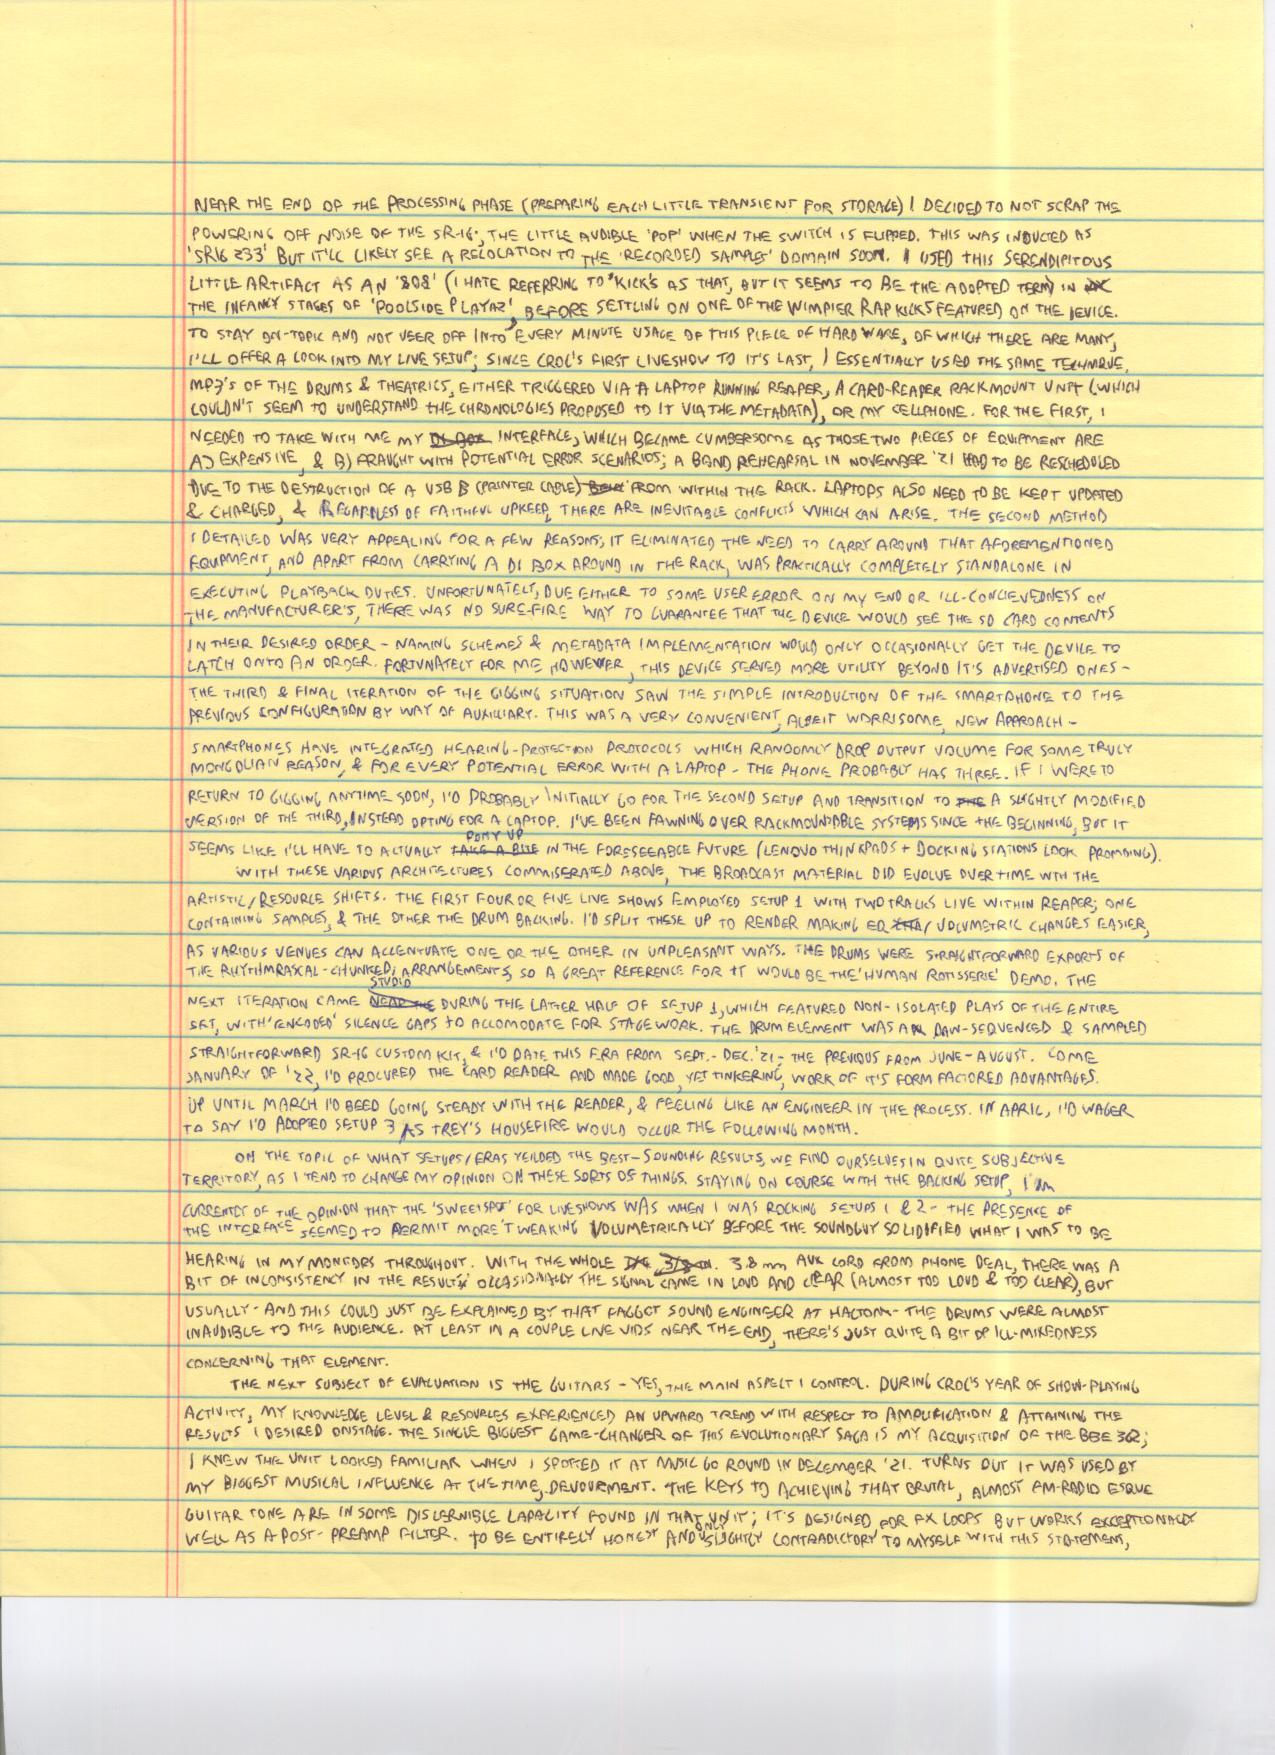 NEAR THE END OF THE PROCESSING PHASE (PREPARING EACH LITTLE TRANSIENT FOR STORAGE) I DECIDED TO NOT SCRAP THE
POWERING OFF NOISE OF THE SR-16; THE LITTLE AUDIBLE 'POP' WHEN THE SWITCH IS FLIPPED. THIS WAS INDUCTED AS
'SR16 233' BUT IT'LL LIKELY SEE A RELOCATION TO THE 'RECORDED SAMPLES' DOMAIN SOON. I USED THIS SERENDIPITOUS
LITTLE ARTIFACT AS AN '808' (I HATE REFERRING TO KICK'S AS THAT, BUT IT SEEMS TO BE THE ADOPTED TERM) IN
THE INFANCY STAGES OF 'POOLSIDE PLAYAZ', BEFORE SETTLING ON ONE OF THE WIMPIER RAP KICKS FEATURED ON THE DEVICE.
TO STAY ON-TOPIC AND NOT VEER OFF INTO EVERY MINUTE USAGE OF THIS PIECE OF HARDWARE, OF WHICH THERE ARE MANY,
I'LL OFFER A LOOK INTO MY LIVE SETUP; SINCE CROC'S FIRST LIVESHOW TO IT'S LAST, I ESSENTIALLY USED THE SAME TECHNIQUE.
MP3'S OF THE DRUMS & THEATRICS, EITHER TRIGGERED VIA A LAPTOP RUNNING REAPER, A CARD-READER RACKMOUNT UNIT (WHICH
COULDN'T SEEM TO UNDERSTAND THE CHRONOLOGIES PROPOSED TO IT VIA THE METADATA), OR MY CELLPHONE. FOR THE FIRST, I
NEEDED TO TAKE WITH ME MY DI BOX INTERFACE, WHICH BECAME CUMBERSOME AS THOSE TWO PIECES OF EQUIPMENT ARE
A) EXPENSIVE, & B) FRAUGHT WITH POTENTIAL ERROR SCENARIOS; A BAND REHEARSAL IN NOVEMBER '21 HAD TO BE RESCHEDULED
DUE TO THE DESTRUCTION OF A USB B (PRINTER CABLE) FROM WITHIN THE RACK. LAPTOPS ALSO NEED TO BE KEPT UPDATED
& CHARGED, & REGARDLESS OF FAITHFUL UPKEEP, THERE ARE INEVITABLE CONFLICTS WHICH CAN ARISE. THE SECOND METHOD
I DETAILED WAS VERY APPEALING FOR A FEW REASONS; IT ELIMINATED THE NEED TO CARRY AROUND THAT AFOREMENTIONED
EQUIPMENT, AND APART FROM CARRYING A DI BOX AROUND IN THE RACK, WAS PRACTICALLY COMPLETELY STANDALONE IN
EXECUTING PLAYBACK DUTIES. UNFORTUNATELY, DUE EITHER TO SOME USER ERROR ON MY END OR ILL-CONCIEVEDNESS ON
THE MANUFACTURER'S, THERE WAS NO SURE-FIRE WAY TO GUARANTEE THAT THE DEVICE WOULD SEE THE SD CARD CONTENTS
IN THEIR DESIRED ORDER - NAMING SCHEMES & METADATA IMPLEMENTATION WOULD ONLY OCCASIONALLY GET THE DEVICE TO
LATCH ONTO AN ORDER. FORTUNATELY FOR ME HOWEVER, THIS DEVICE SERVED MORE UTILITY BEYOND IT'S ADVERTISED ONES -
THE THIRD & FINAL ITERATION OF THE GIGGING SITUATION SAW THE SIMPLE INTRODUCTION OF THE SMARTPHONE TO THE
PREVIOUS CONFIGURATION BY WAY OF AUXILIARY. THIS WAS A VERY CONVENIENT, ALBEIT WORRISOME, NEW APPROACH -
SMARTPHONES HAVE INTEGRATED HEARING-PROTECTION PROTOCOLS WHICH RANDOMLY DROP OUTPUT VOLUME FOR SOME TRULY
MONGOLIAN REASON, & FOR EVERY POTENTIAL ERROR WITH A LAPTOP - THE PHONE PROBABLY HAS THREE. IF I WERE TO
RETURN TO GIGGING ANYTIME SOON, I'D PROBABLY INITIALLY GO FOR THE SECOND SETUP AND TRANSITION TO THE A SLIGHTLY MODIFIED
VERSION OF THE THIRD, INSTEAD OPTING FOR A LAPTOP. I'VE BEEN FAWNING OVER RACKMOUNDABLE SYSTEMS SINCE THE BEGINNING, BUT IT
PONY UP
SEEMS LIKE I'LL HAVE TO ACTUALLY TAKE A BITE IN THE FORESEEABLE FUTURE (LENOVO THINKPADS + DOCKING STATIONS LOOK PROMISING).
WITH THESE VARIOUS ARCHITECTURES COMMISERATED ABOVE, THE BROADCAST MATERIAL DID EVOLVE OVER TIME WTH THE
ARTISTIC/RESOURCE SHIFTS. THE FIRST FOUR OR FIVE LIVE SHOWS EMPLOYED SETUP 1 WITH TWO TRACKS LIVE WITHIN REAPER; ONE
CONTAINING SAMPLES, & THE OTHER THE DRUM BACKING. I'D SPLIT THESE UP TO RENDER MAKING EQ / VOLUMETRIC CHANGES EASIER,
AS VARIOUS VENUES CAN ACCENTUATE ONE OR THE OTHER IN UNPLEASANT WAYS. THE DRUMS WERE STRAIGHTFORWARD EXPORTS OF
THE RHYTHMRASCAL-CHUNKED ARRANGEMENTS, SO A GREAT REFERENCE FOR IT WOULD BE THE 'HUMAN ROTISSERIE' DEMO. THE
STUDIO
NEXT ITERATION CAME NEAR THE DURING THE LATTER HALF OF SETUP 1, WHICH FEATURED NON-ISOLATED PLAYS OF THE ENTIRE
SET, WITH 'ENCODED' SILENCE GAPS TO ACCOMODATE FOR STAGEWORK. THE DRUM ELEMENT WAS A DAW-SEQUENCED & SAMPLED
STRAIGHTFORWARD SR-16 CUSTOM KIT, & I'D DATE THIS ERA FROM SEPT.- DEC. '21 - THE PREVIOUS FROM JUNE-AUGUST. COME
JANUARY OF '22, I'D PROCURED THE CARD READER AND MADE GOOD, YET TINKERING, WORK OF IT'S FORM FACTORED ADVANTAGES.
UP UNTIL MARCH I'D BEED GOING STEADY WITH THE READER, & FEELING LIKE AN ENGINEER IN THE PROCESS. IN APRIL, I'D WAGER
TO SAY I'D ADOPTED SETUP 3, AS TREY'S HOUSEFIRE WOULD OCCUR THE FOLLOWING MONTH.
ON THE TOPIC OF WHAT SETUPS/ERAS YEILDED THE BEST-SOUNDING RESULTS, WE FIND OURSELVES IN QUITE SUBJECTIVE
TERRITORY, AS I TEND TO CHANGE MY OPINION ON THESE SORTS OF THINGS. STAYING ON COURSE WITH THE BACKING SETUP, I'M
CURRENTLY OF THE OPINION THAT THE 'SWEETSPOT' FOR LIVESHOWS WAS WHEN I WAS ROCKING SETUPS 1 & 2 - THE PRESENCE OF
THE INTERFACE SEEMED TO PERMIT MORE TWEAKING VOLUMETRICALLY BEFORE THE SOUNDGUY SOLIDIFIED WHAT I WAS TO BE
HEARING IN MY MONITORS THROUGHOUT. WITH THE WHOLE 3.8 mm AUX CORD FROM PHONE DEAL, THERE WAS A
BIT OF INCONSISTENCY IN THE RESULTS; OCCASIONALLY THE SIGNAL CAME IN LOUD AND CLEAR (ALMOST TOO LOUD & TOO CLEAR), BUT
USUALLY - AND THIS COULD JUST BE EXPLAINED BY THAT FAGGOT SOUND ENGINEER AT HALTOM - THE DRUMS WERE ALMOST
INAUDIBLE TO THE AUDIENCE. AT LEAST IN A COUPLE LIVE VIDS NEAR THE END, THERE'S JUST QUITE A BIT OF ILL-MIXEDNESS
CONCERNING THAT ELEMENT.
THE NEXT SUBJECT OF EVALUATION IS THE GUITARS - YES, THE MAIN ASPECT I CONTROL. DURING CROC'S YEAR OF SHOW-PLAYING
ACTIVITY, MY KNOWLEDGE LEVEL & RESOURCES EXPERIENCED AN UPWARD TREND WITH RESPECT TO AMPLIFICATION & ATTAINING THE
RESULTS I DESIRED ONSTAGE. THE SINGLE BIGGEST GAME-CHANGER OF THIS EVOLUTIONARY SAGA IS MY ACQUISITION OF THE BBE 362;
I KNEW THE UNIT LOOKED FAMILIAR WHEN I SPOTTED IT AT MUSIC GO ROUND IN DECEMBER '21. TURNS OUT IT WAS USED BY
MY BIGGEST MUSICAL INFLUENCE AT THE TIME, DEVOURMENT. THE KEYS TO ACHIEVING THAT BRUTAL, ALMOST FM-RADIO ESQUE
GUITAR TONE ARE IN SOME DISCERNIBLE CAPACITY FOUND IN THAT UNIT; IT'S DESIGNED FOR FX LOOPS BUT WORKS EXCEPTIONALLY
WELL AS A POST-PREAMP FILTER. TO BE ENTIRELY HONEST AND ONLY SLIGHTLY CONTRADICTORY TO MYSELF WITH THIS STATEMENT,